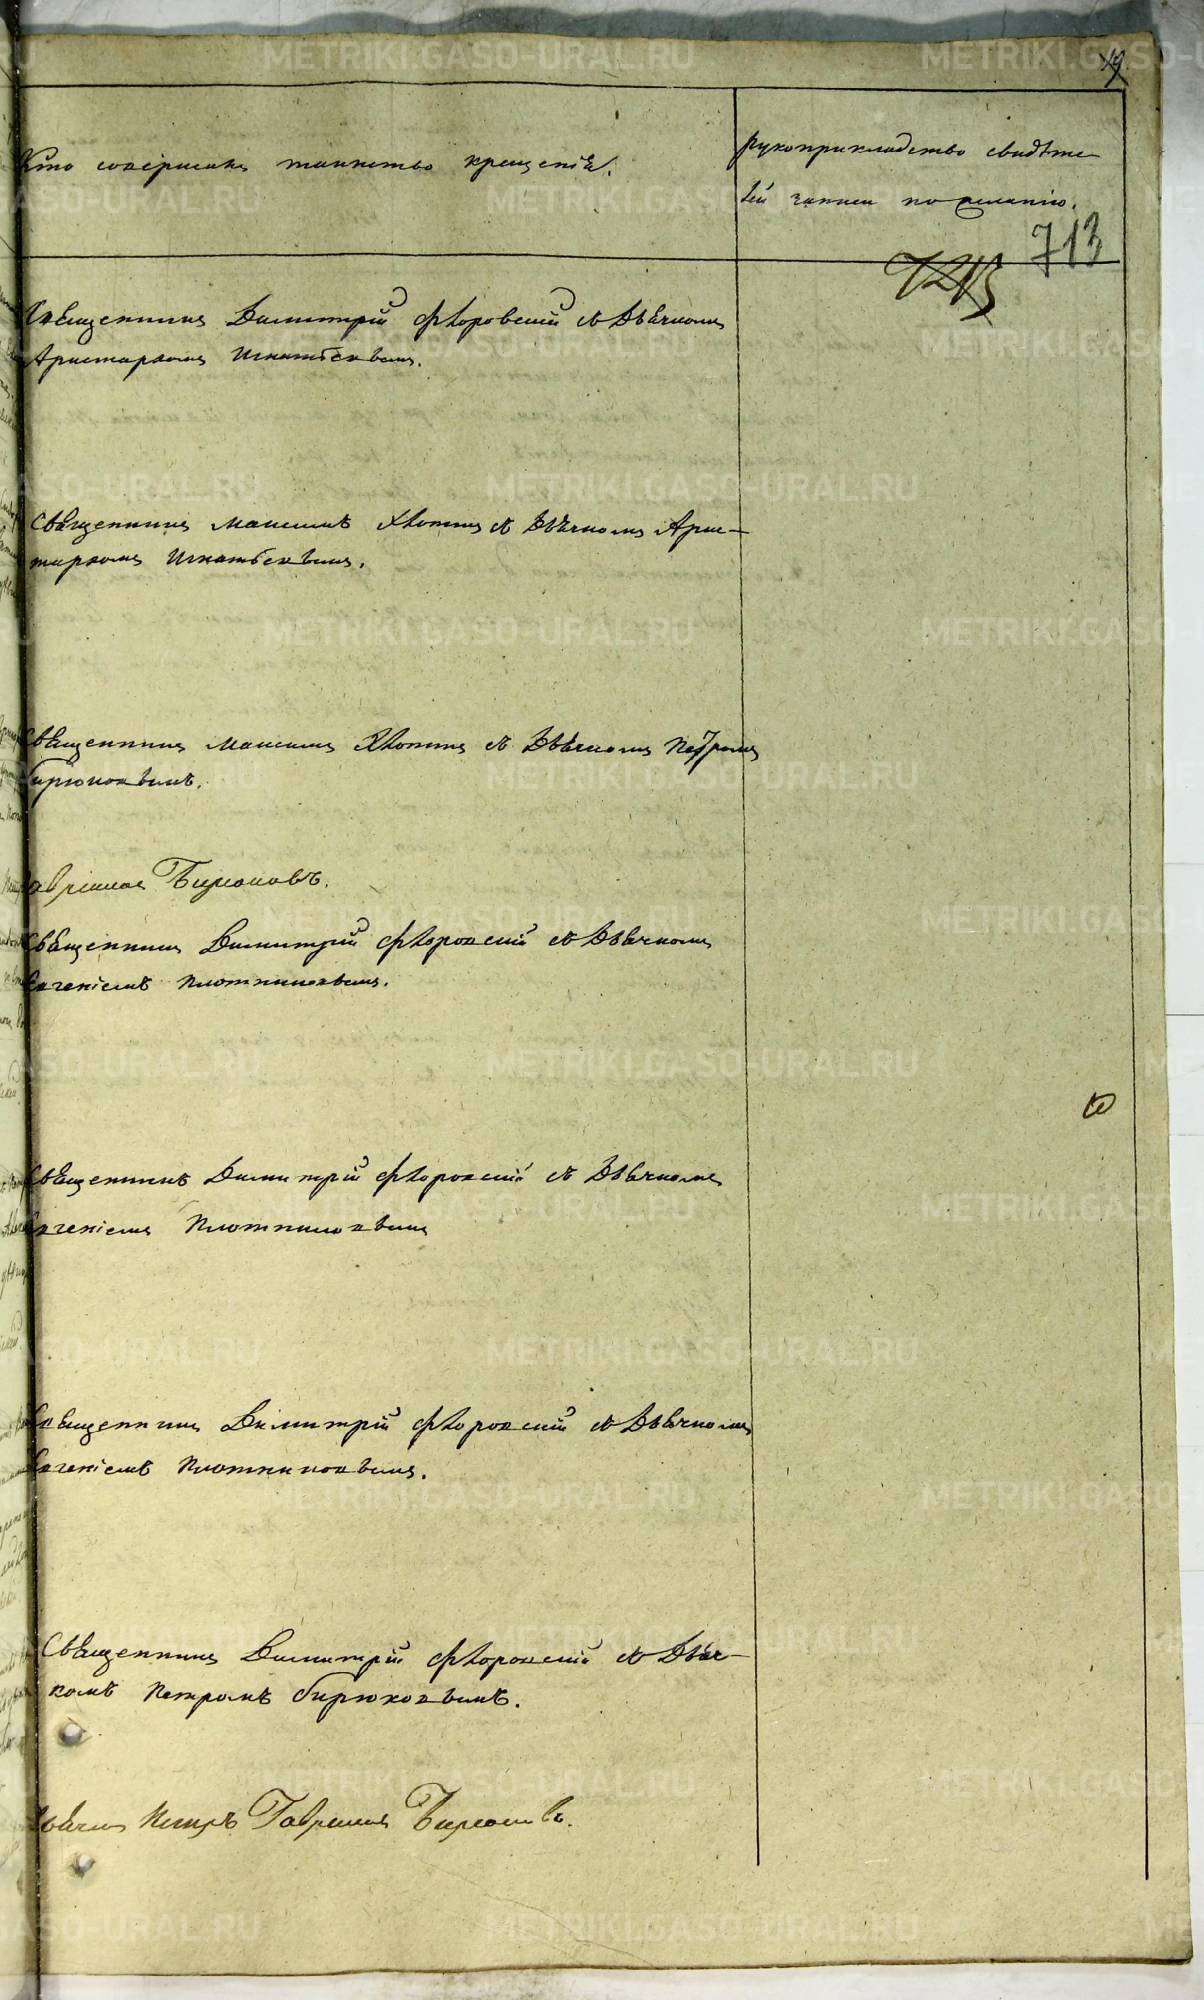 Кто совершалъ таинство крещенія.
Рукоприкладство свидѣте
лей записи по желанію.
713
Священникъ Димитрій Флоровскій съ Дьячкомъ
Аристархомъ Игнатьевымъ.
Священникъ Максимъ Хлопинъ съ Дьячкомъ Арис-
тархомъ Игнатьевымъ.
Священникъ Максимъ Хлопинъ съ Дьячкомъ Петромъ
Бирюковымъ.
Гавріиловъ Бирюковъ.
Священникъ Димитрій Флоровскій съ Дьячкомъ
Евгеніемъ Плотниковымъ.
Священникъ Димитрій Флоровскій съ Дьячкомъ
Евгеніемъ Плотниковымъ
Священникъ Димитрій Флоровскій съ Дьячкомъ
Евгеніемъ Плотниковымъ.
Священникъ Димитрій Флоровскій съ Дьяч-
комъ Петромъ Бирюковымъ.
Дьячекъ Петръ Гавриловъ Бирюковъ.
METRIKI.GASO-URAL.RU